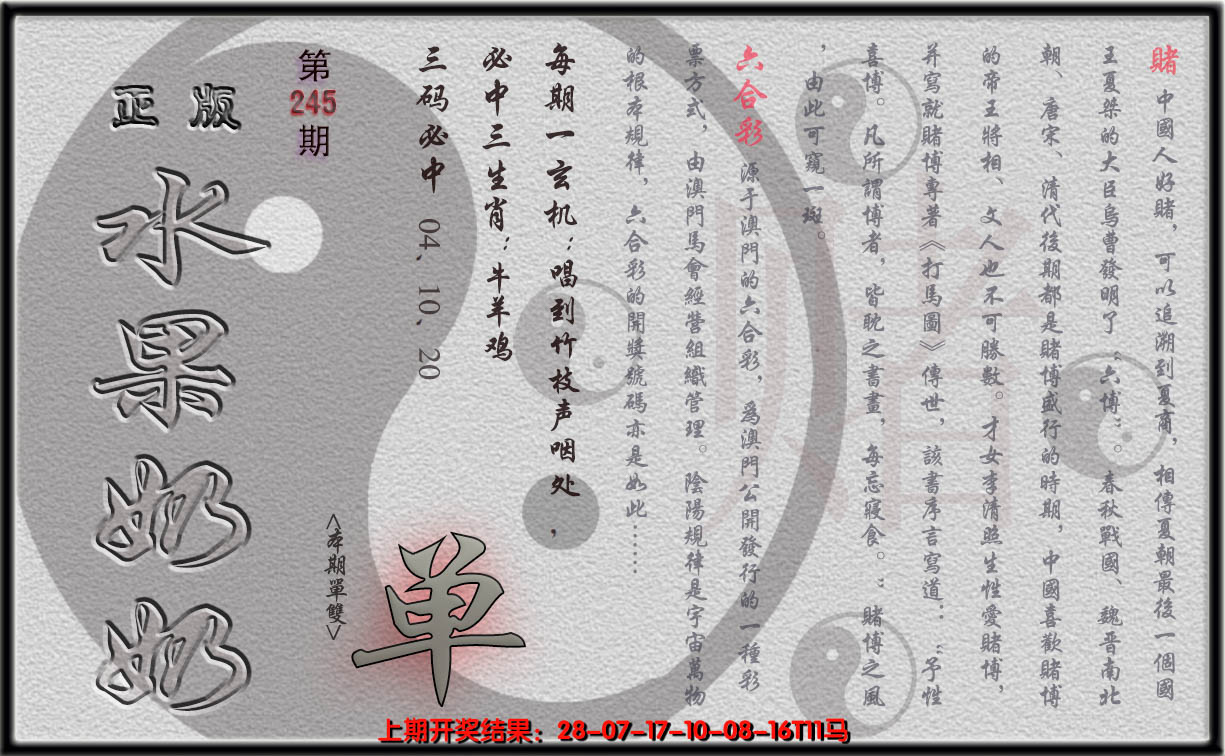 賭 中國人好賭，可以追溯到夏商，相傳夏朝最後一個國
王夏桀的大臣烏曹發明了“六博”。春秋戰國、魏晋南北
朝、唐宋、清代後期都是賭博盛行的時期，中國喜歡賭博
的帝王將相、文人也不可勝數。才女李清照生性愛賭博，
并寫就賭博專著《打馬圖》傳世，該書序言寫道：“予性
喜博。凡所謂博者，皆耽之書畫，每忘寢食。”賭博之風
，由此可窺一斑。
六合彩 源于澳門的六合彩，爲澳門公開發行的一種彩
票方式，由澳門馬會經營組織管理。陰陽規律是宇宙萬物
的根本規律，六合彩的開獎號碼亦是如此……
每期一玄机：唱到竹枝声咽处，
必中三生肖：牛羊鸡
三码必中 04．10．20
<本期單雙>
单
第
245
期
正版
水果奶奶
赌
上期开奖结果：28-07-17-10-08-16T11马